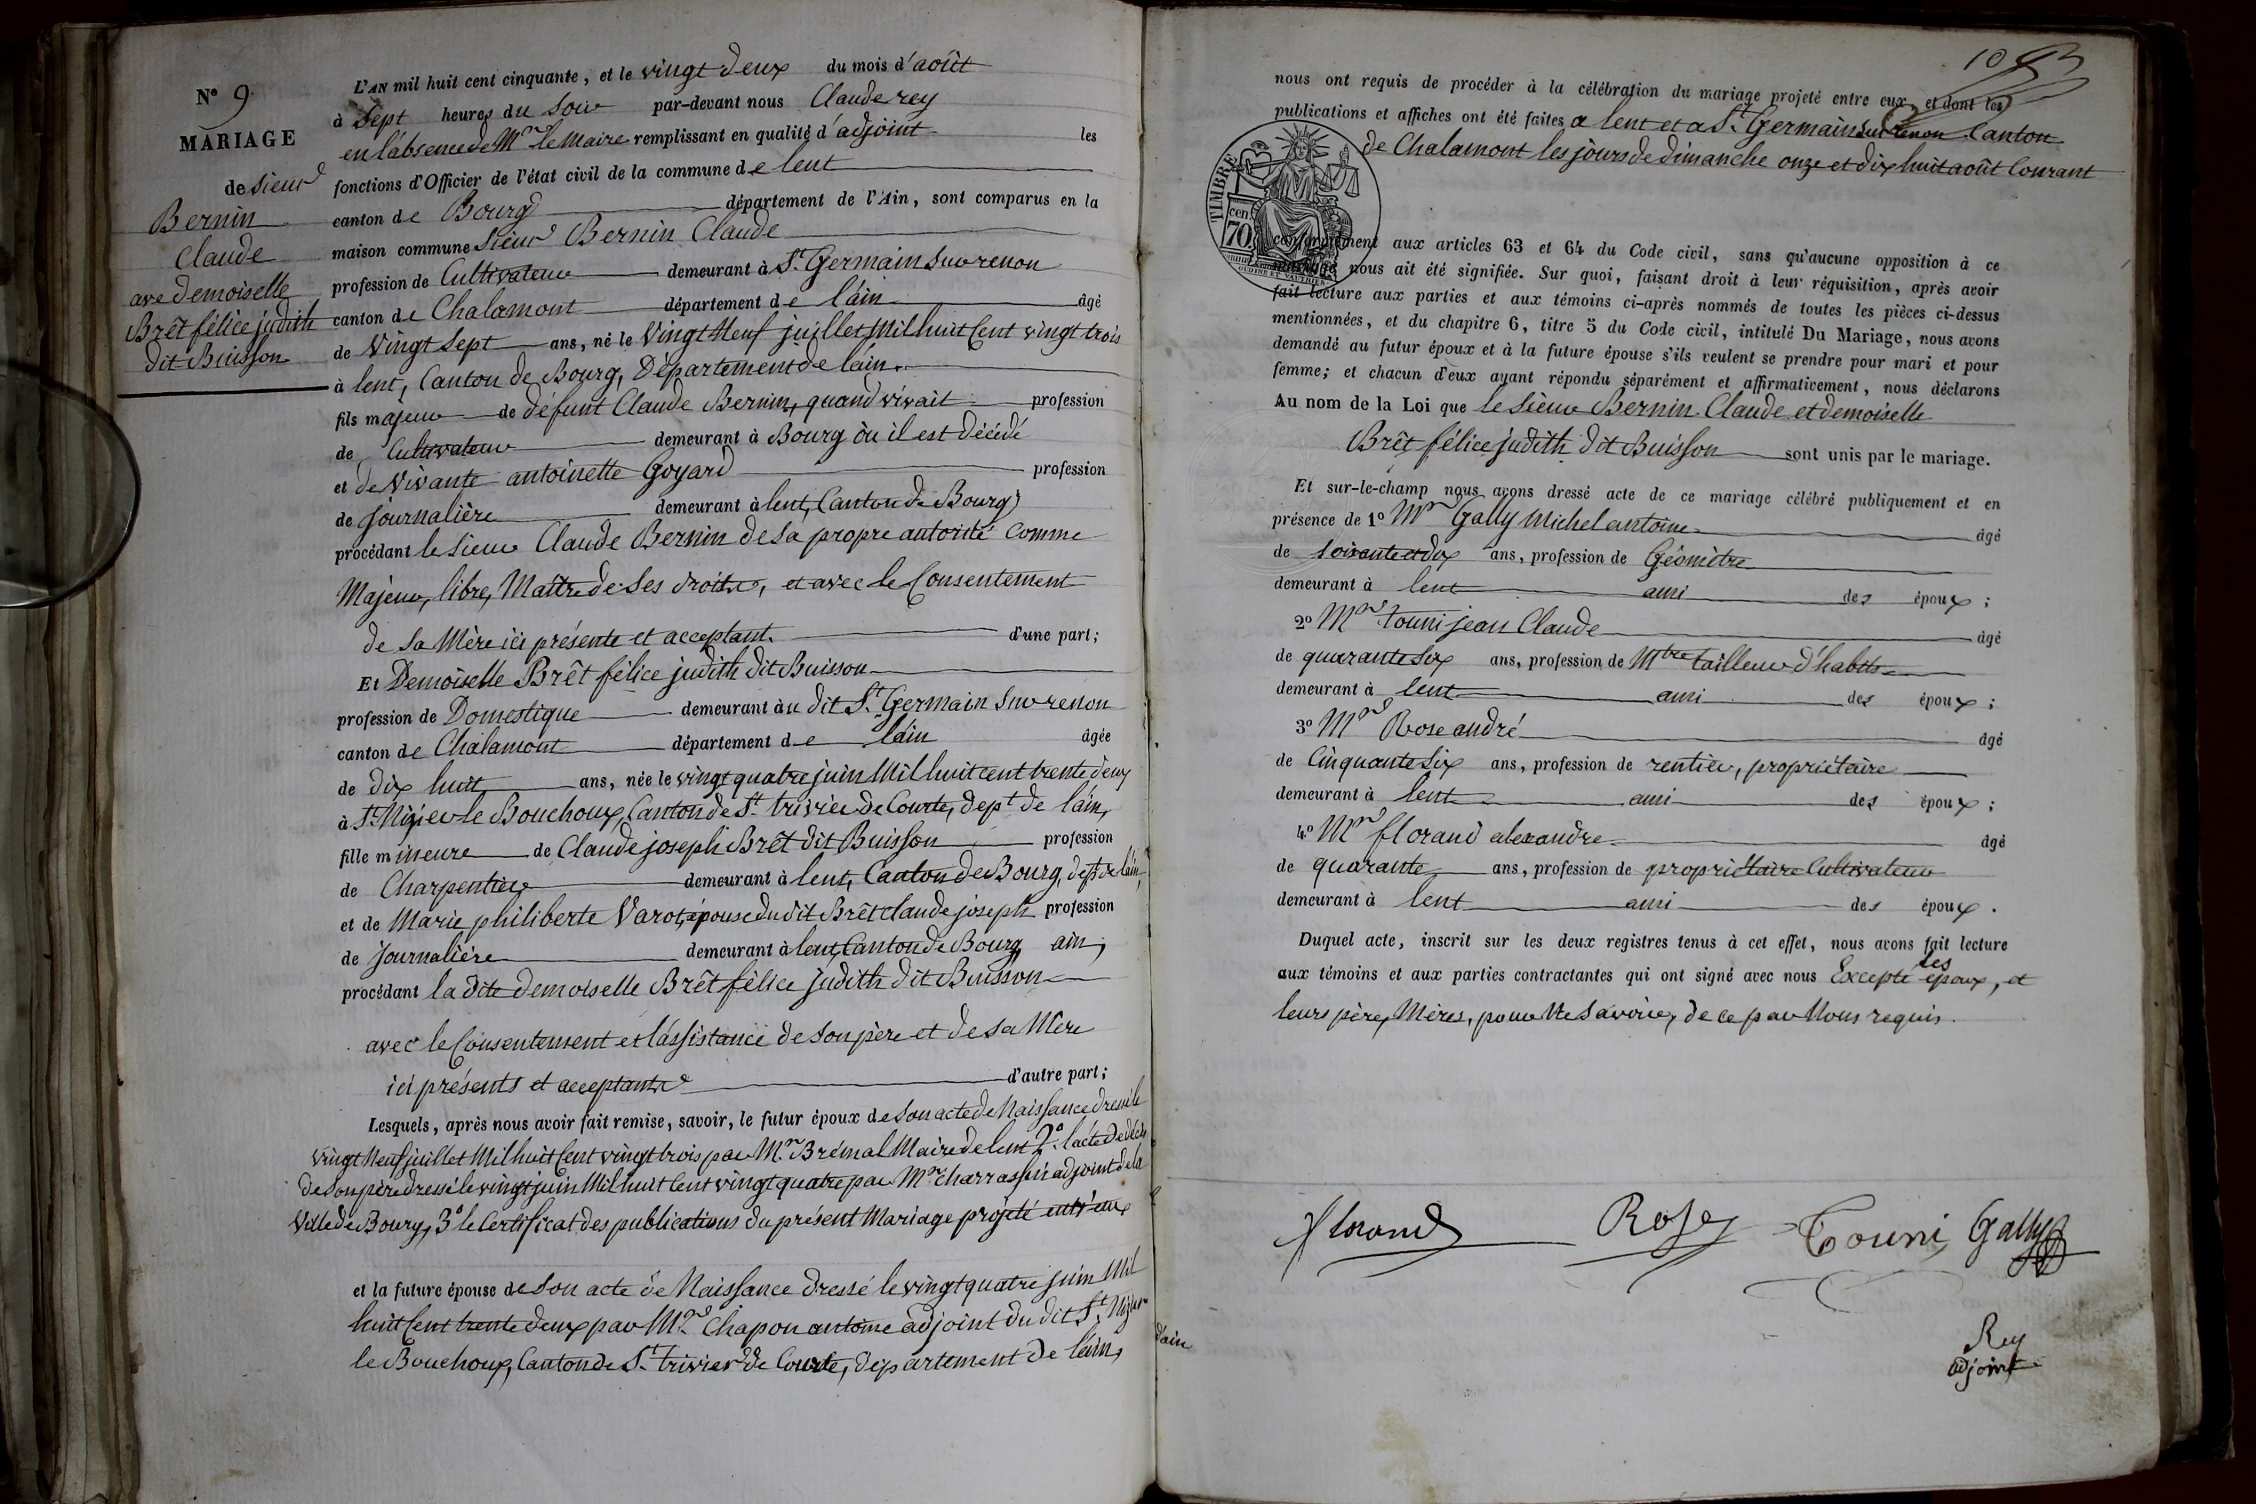 N° 9
MARIAGE
de Sieur
Bernin
Claude
avec demoiselle
Brêt félice judith
dit Buisson
L'AN mil huit cent cinquante, et le vingt deux du mois d'août
à Sept heures du Soir par-devant nous Claude rey
en l'absence de Mr le Maire remplissant en qualité d'adjoint les
fonctions d'Officier de l'état civil de la commune de lent
canton de Bourg département de l'Ain, sont comparus en la
maison commune Sieur Bernin Claude
profession de Cultivateur demeurant à St Germain Sur renon
canton de Chalamont département de l'ain âgé
de Vingt Sept ans, né le Vingt Neuf juillet Mil huit Cent vingt trois
à lent, Canton de Bourg, Département de lain.
fils majeur de défunt Claude Bernin, quand vivait profession
de Cultivateur demeurant à Bourg où il est décédé
et de Vivante antoinette Goyard profession
de Journalière demeurant à lent, Canton de Bourg
procédant le Sieur Claude Bernin de sa propre autorité Comme
Majeur, libre, Maître de Ses droits, et avec le Consentement
de Sa Mère ici présente et acceptant. d'une part;
Et Demoiselle Brêt félice judith dit Buisson
profession de Domestique demeurant au dit St Germain Sur renon
canton de Chalamont département de l'ain âgée
de Dix huit ans, née le vingt quatre juin Mil huit cent trente deux
à St Nizier le Bouchoux, Canton de St trivier De Courte, dept de l'ain,
fille mineure de Claude joseph Brêt dit Buisson profession
de Charpentier demeurant à lent, Canton de Bourg, dept de l'ain,
et de Marie philiberte Varot, épouse du dit Brêt claude joseph profession
de Journalière demeurant à lent, Canton de Bourg ain,
procédant la dite demoiselle Brêt félice judith dit Buisson
avec le Consentement et l'assistance de Son père et de Sa Mère
ici présents et acceptants d'autre part;
Lesquels, après nous avoir fait remise, savoir, le futur époux de Son acte de Naissance dressé le
vingt Neuf juillet Mil huit Cent vingt trois par Mr Brémal Maire de lent 2° l'acte de décès
de Son père dressé le vingt juin Mil huit Cent vingt quatre par Mr Charrassin adjoint de la
Ville de Bourg, 3° le Certificat des publications du présent Mariage projeté entr'eux
et la future épouse de Son acte de Naissance dressé le vingt quatre juin Mil
huit Cent trente deux par Mr Chapon antoine adjoint du dit St Nizier
le Bouchoux, Canton de St trivier de Courte, département de lain,
d'ain
nous ont requis de procéder à la célébration du mariage projeté entre eux, et dont les
publications et affiches ont été faites a lent et a St Germain Sur renon Canton
de Chalamont les jours de dimanche onze et dix huit août Courant
TIMBRE
cen
70
conformément aux articles 63 et 64 du Code civil, sans qu'aucune opposition à ce
mariage nous ait été signifiée. Sur quoi, faisant droit à leur réquisition, après avoir
fait lecture aux parties et aux témoins ci-après nommés de toutes les pièces ci-dessus
mentionnées, et du chapitre 6, titre 5 du Code civil, intitulé Du Mariage, nous avons
demandé au futur époux et à la future épouse s'ils veulent se prendre pour mari et pour
femme; et chacun d'eux ayant répondu séparément et affirmativement, nous déclarons
Au nom de la Loi que le Sieur Bernin Claude et demoiselle
Brêt félice judith dit Buisson sont unis par le mariage.
Et sur-le-champ nous avons dressé acte de ce mariage célébré publiquement et en
présence de 1° Mr Gally Michel antoine âgé
de Soixante et dix ans, profession de Géomètre
demeurant à lent ami des époux;
2° Mr touni jean Claude âgé
de quarante Six ans, profession de Mtre tailleur d'habits
demeurant à lent ami des époux;
3° Mr Rose andré âgé
de Cinquante Six ans, profession de rentier, propriétaire
demeurant à lent ami des époux;
4° Mr florand alexandre âgé
de quarante ans, profession de propriétaire Cultivateur
demeurant à lent ami des époux.
Duquel acte, inscrit sur les deux registres tenus à cet effet, nous avons fait lecture
aux témoins et aux parties contractantes qui ont signé avec nous Excepté les époux, et
leurs père, Mères, pour Ne Savoir, de ce par Nous requis.
florand Rose Touni Gally
Rey
adjoint